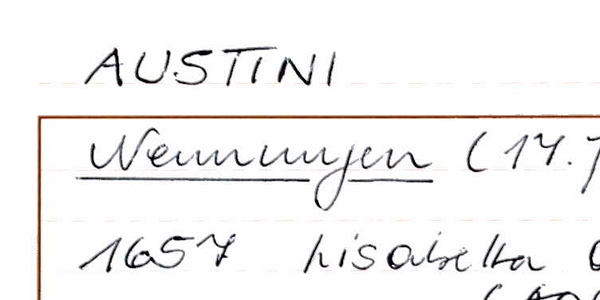 AUSTINI
Nennungen (17.)
1657 Lisabetta